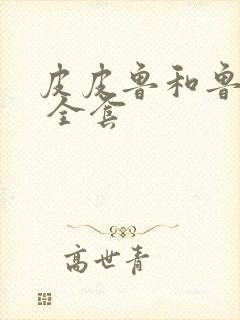 皮皮鲁和鲁
全套
高世青